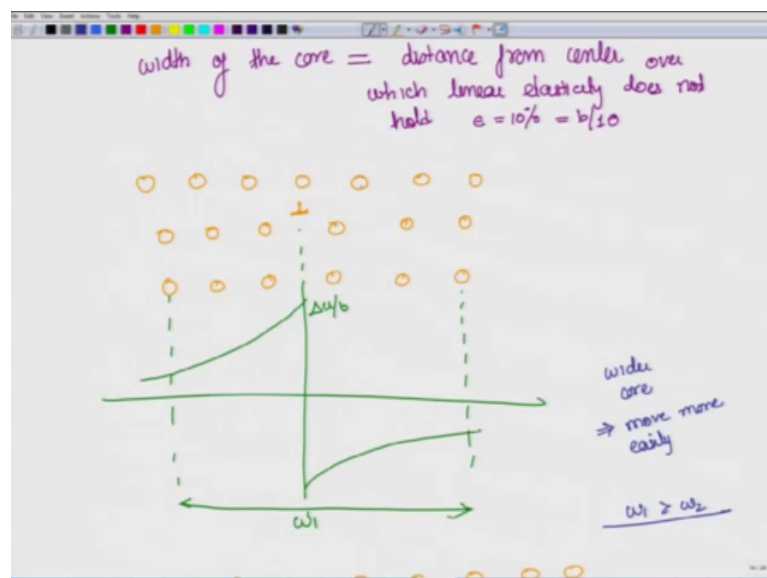 width of the core = distance from center over
which linear elasticity does not
hold e = 10% = b/10
⊥
Δu/b
wider
core
⇒ move more
easily
ω1
ω1 > ω2